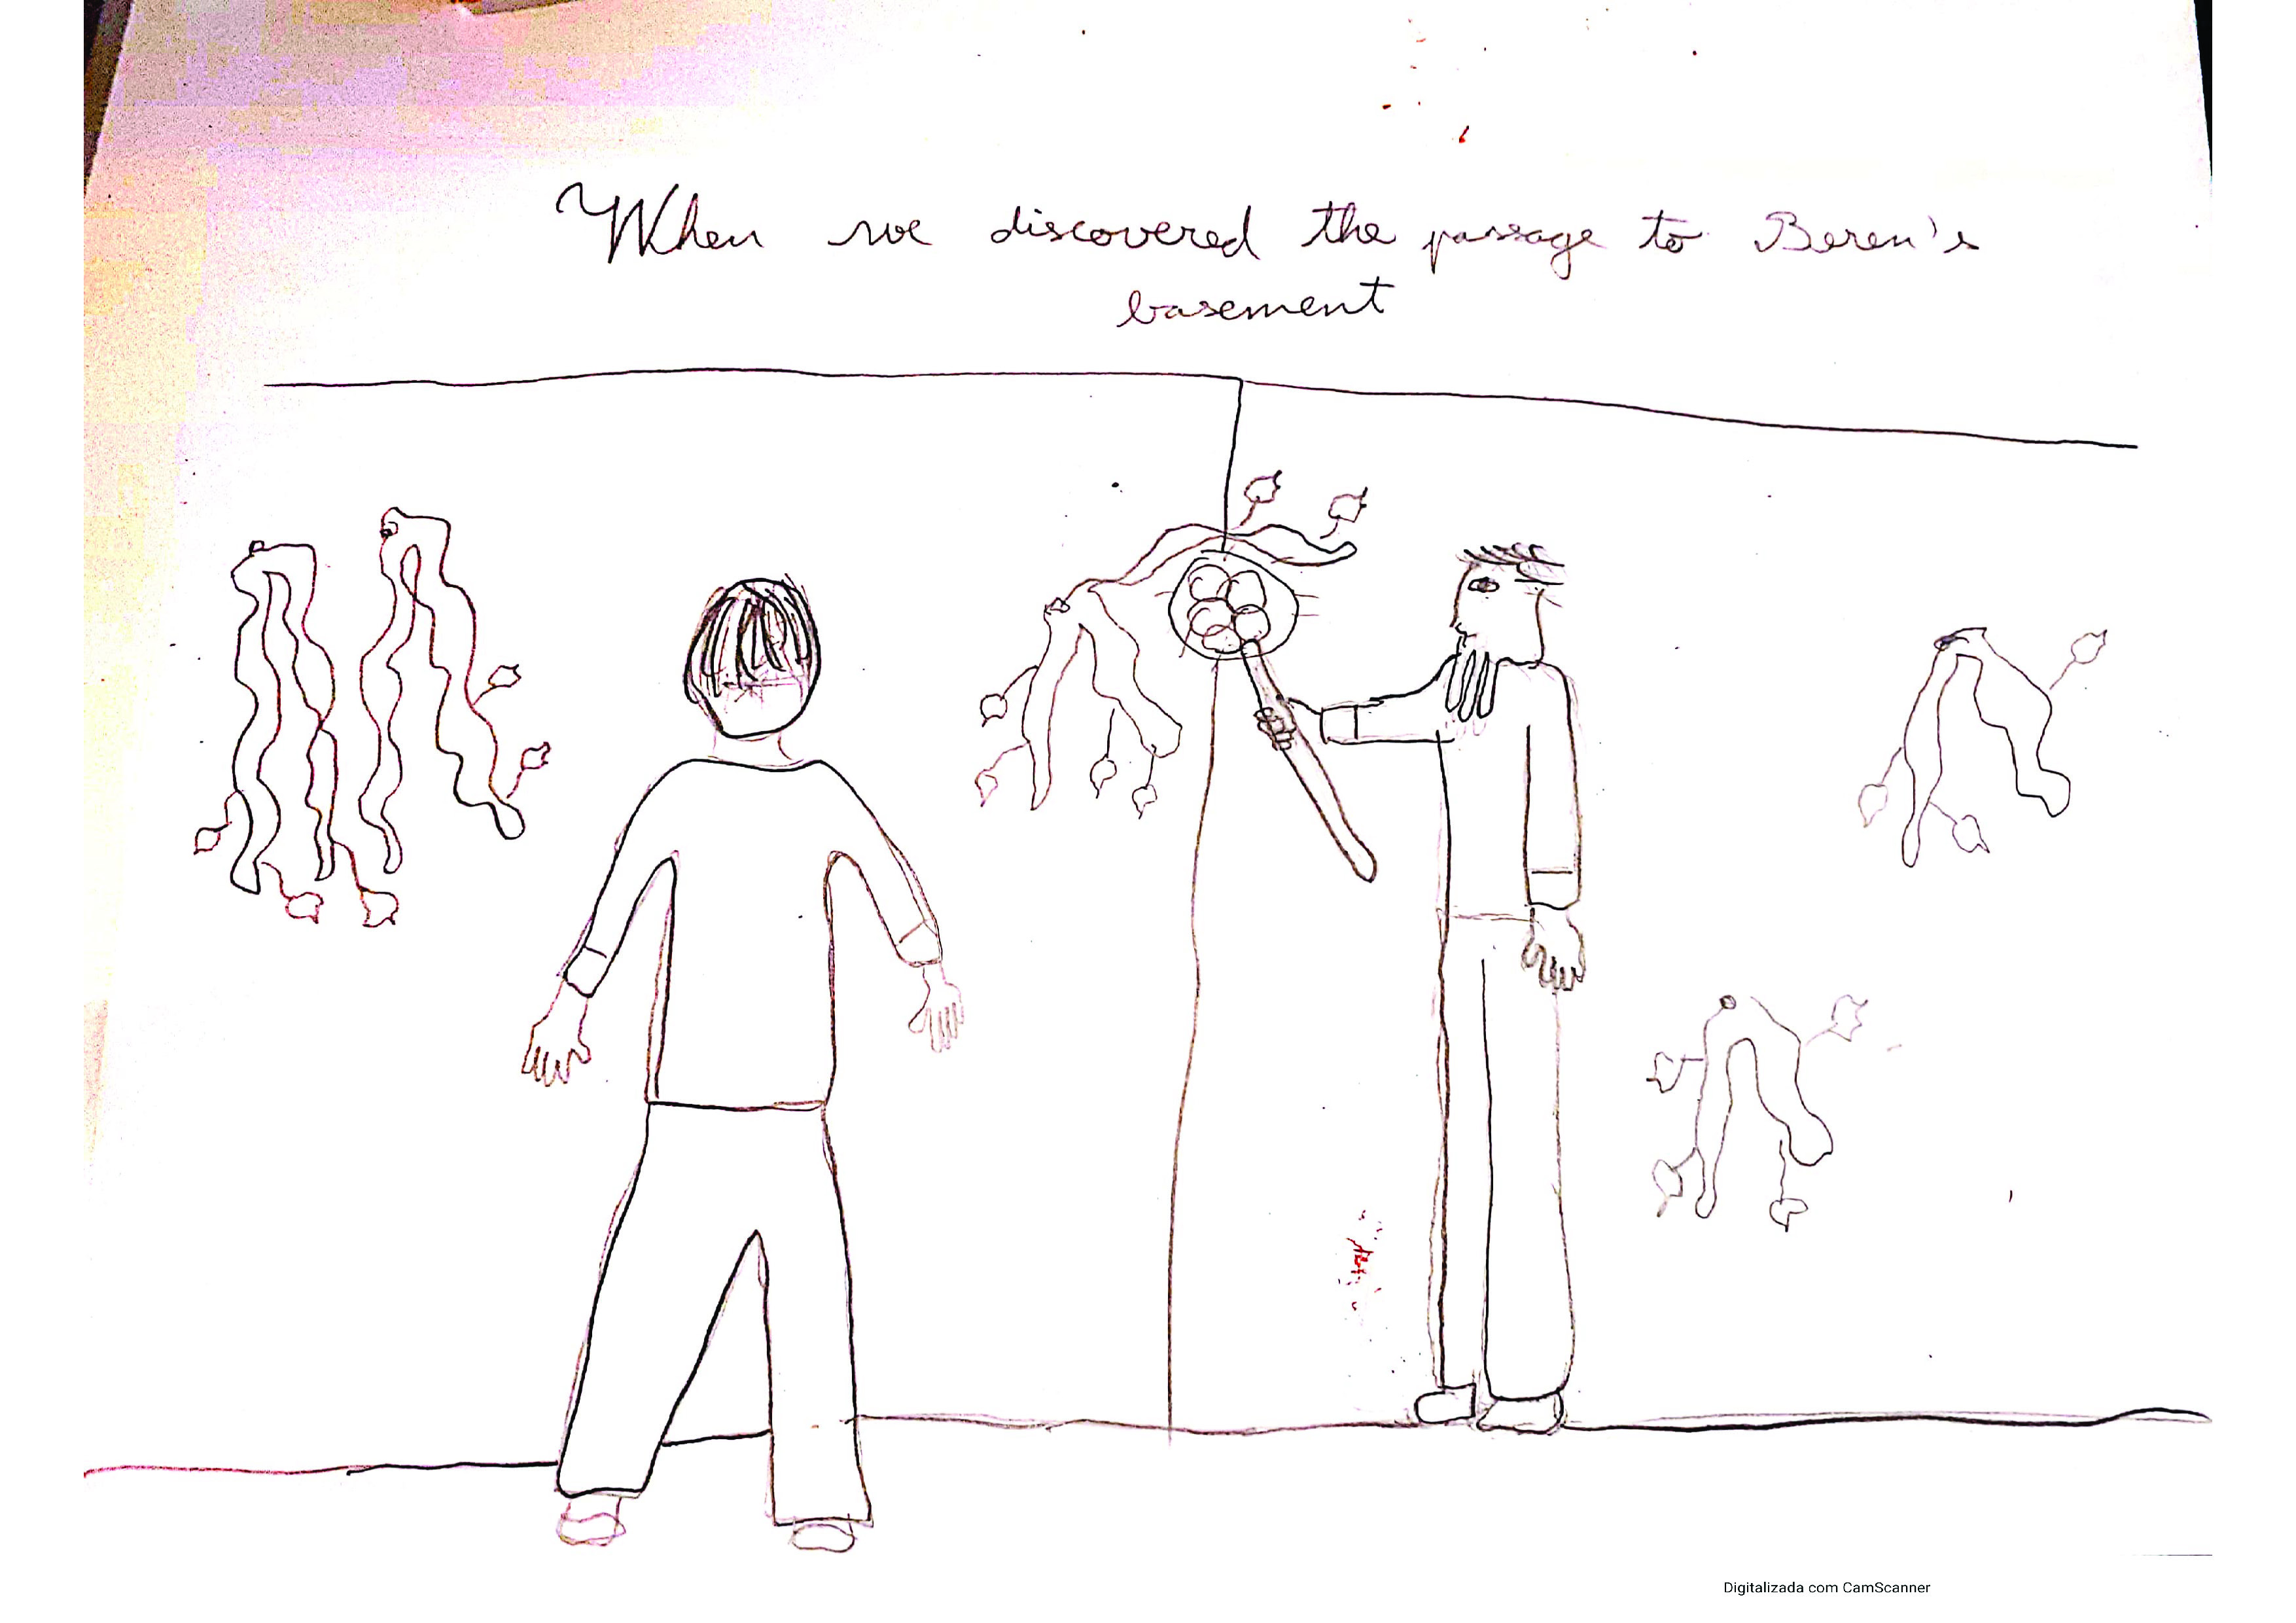 When we discovered the passage to Beren's
basement
Digitalizada com CamScanner